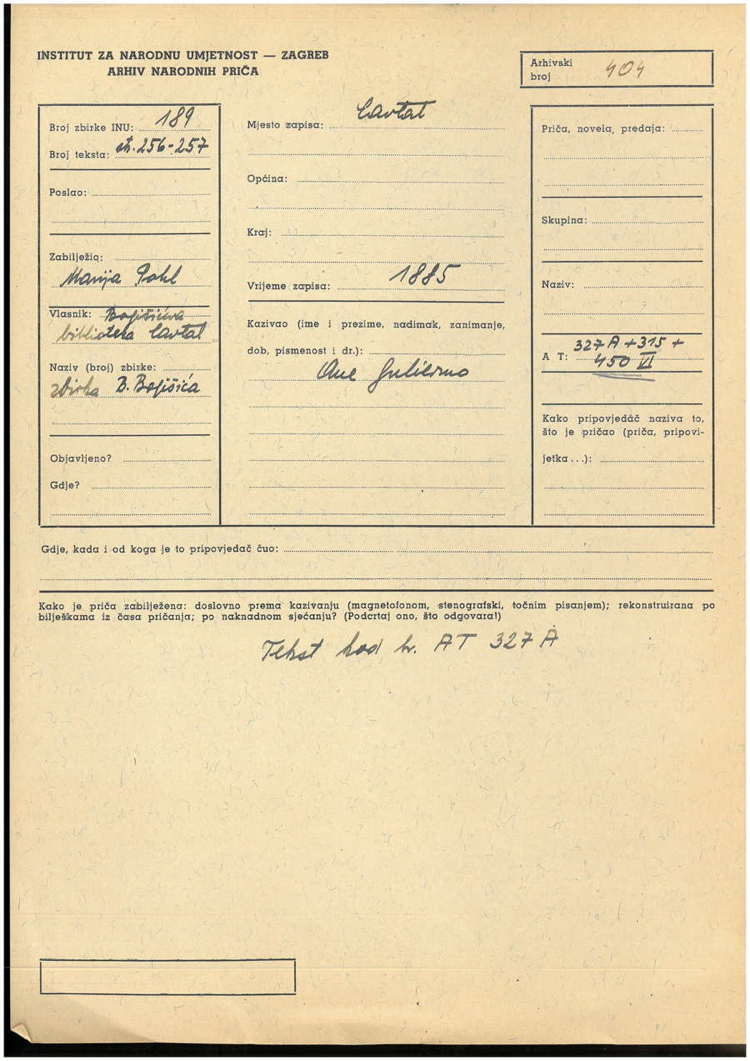 INSTITUT ZA NARODNU UMJETNOST — ZAGREB
ARHIV NARODNIH PRIČA
Arhivski
broj 404
Broj zbirke INU: 189
Broj teksta: str. 256-257
Poslao:
Zabilježio:
Marija Pohl
Vlasnik: Bogišićeva
biblioteka Cavtat
Naziv (broj) zbirke:
zbirka B. Bogišića
Objavljeno?
Gdje?
Mjesto zapisa: Cavtat
Općina:
Kraj:
Vrijeme zapisa: 1885
Kazivao (ime i prezime, nadimak, zanimanje,
dob, pismenost i dr.):
Ane Gulierno
Priča, novela, predaja:
Skupina:
Naziv:
327A + 315 +
A T: 450 VI
Kako pripovjedač naziva to,
što je pričao (priča, pripovi-
jetka...):
Gdje, kada i od koga je to pripovjedač čuo:
Kako je priča zabilježena: doslovno prema kazivanju (magnetofonom, stenografski, točnim pisanjem); rekonstruirana po
bilješkama iz časa pričanja; po naknadnom sjećanju? (Podcrtaj ono, što odgovara!)
Tekst kod br. AT 327 A